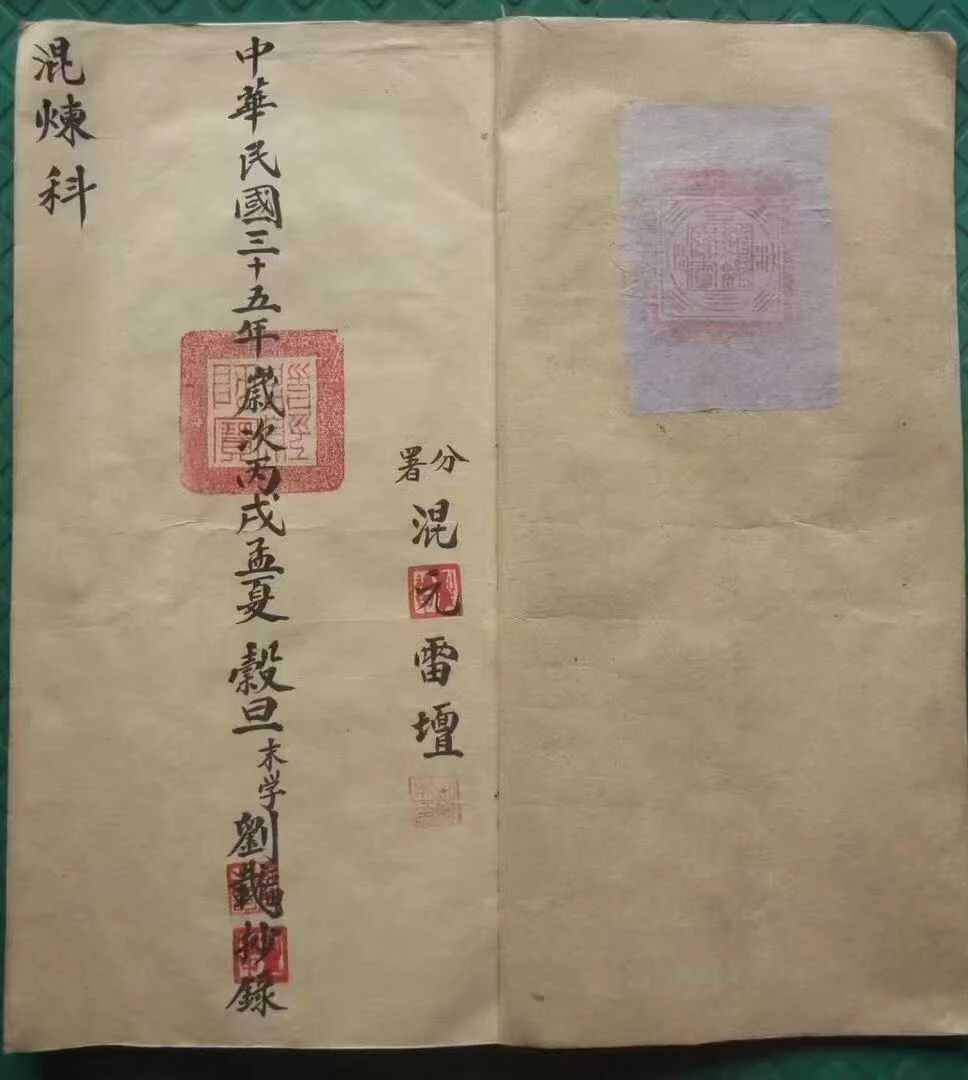 分署混元雷壇
中華民國三十五年歲次丙戌孟夏穀旦末学劉抄錄
道經師寶
混煉科